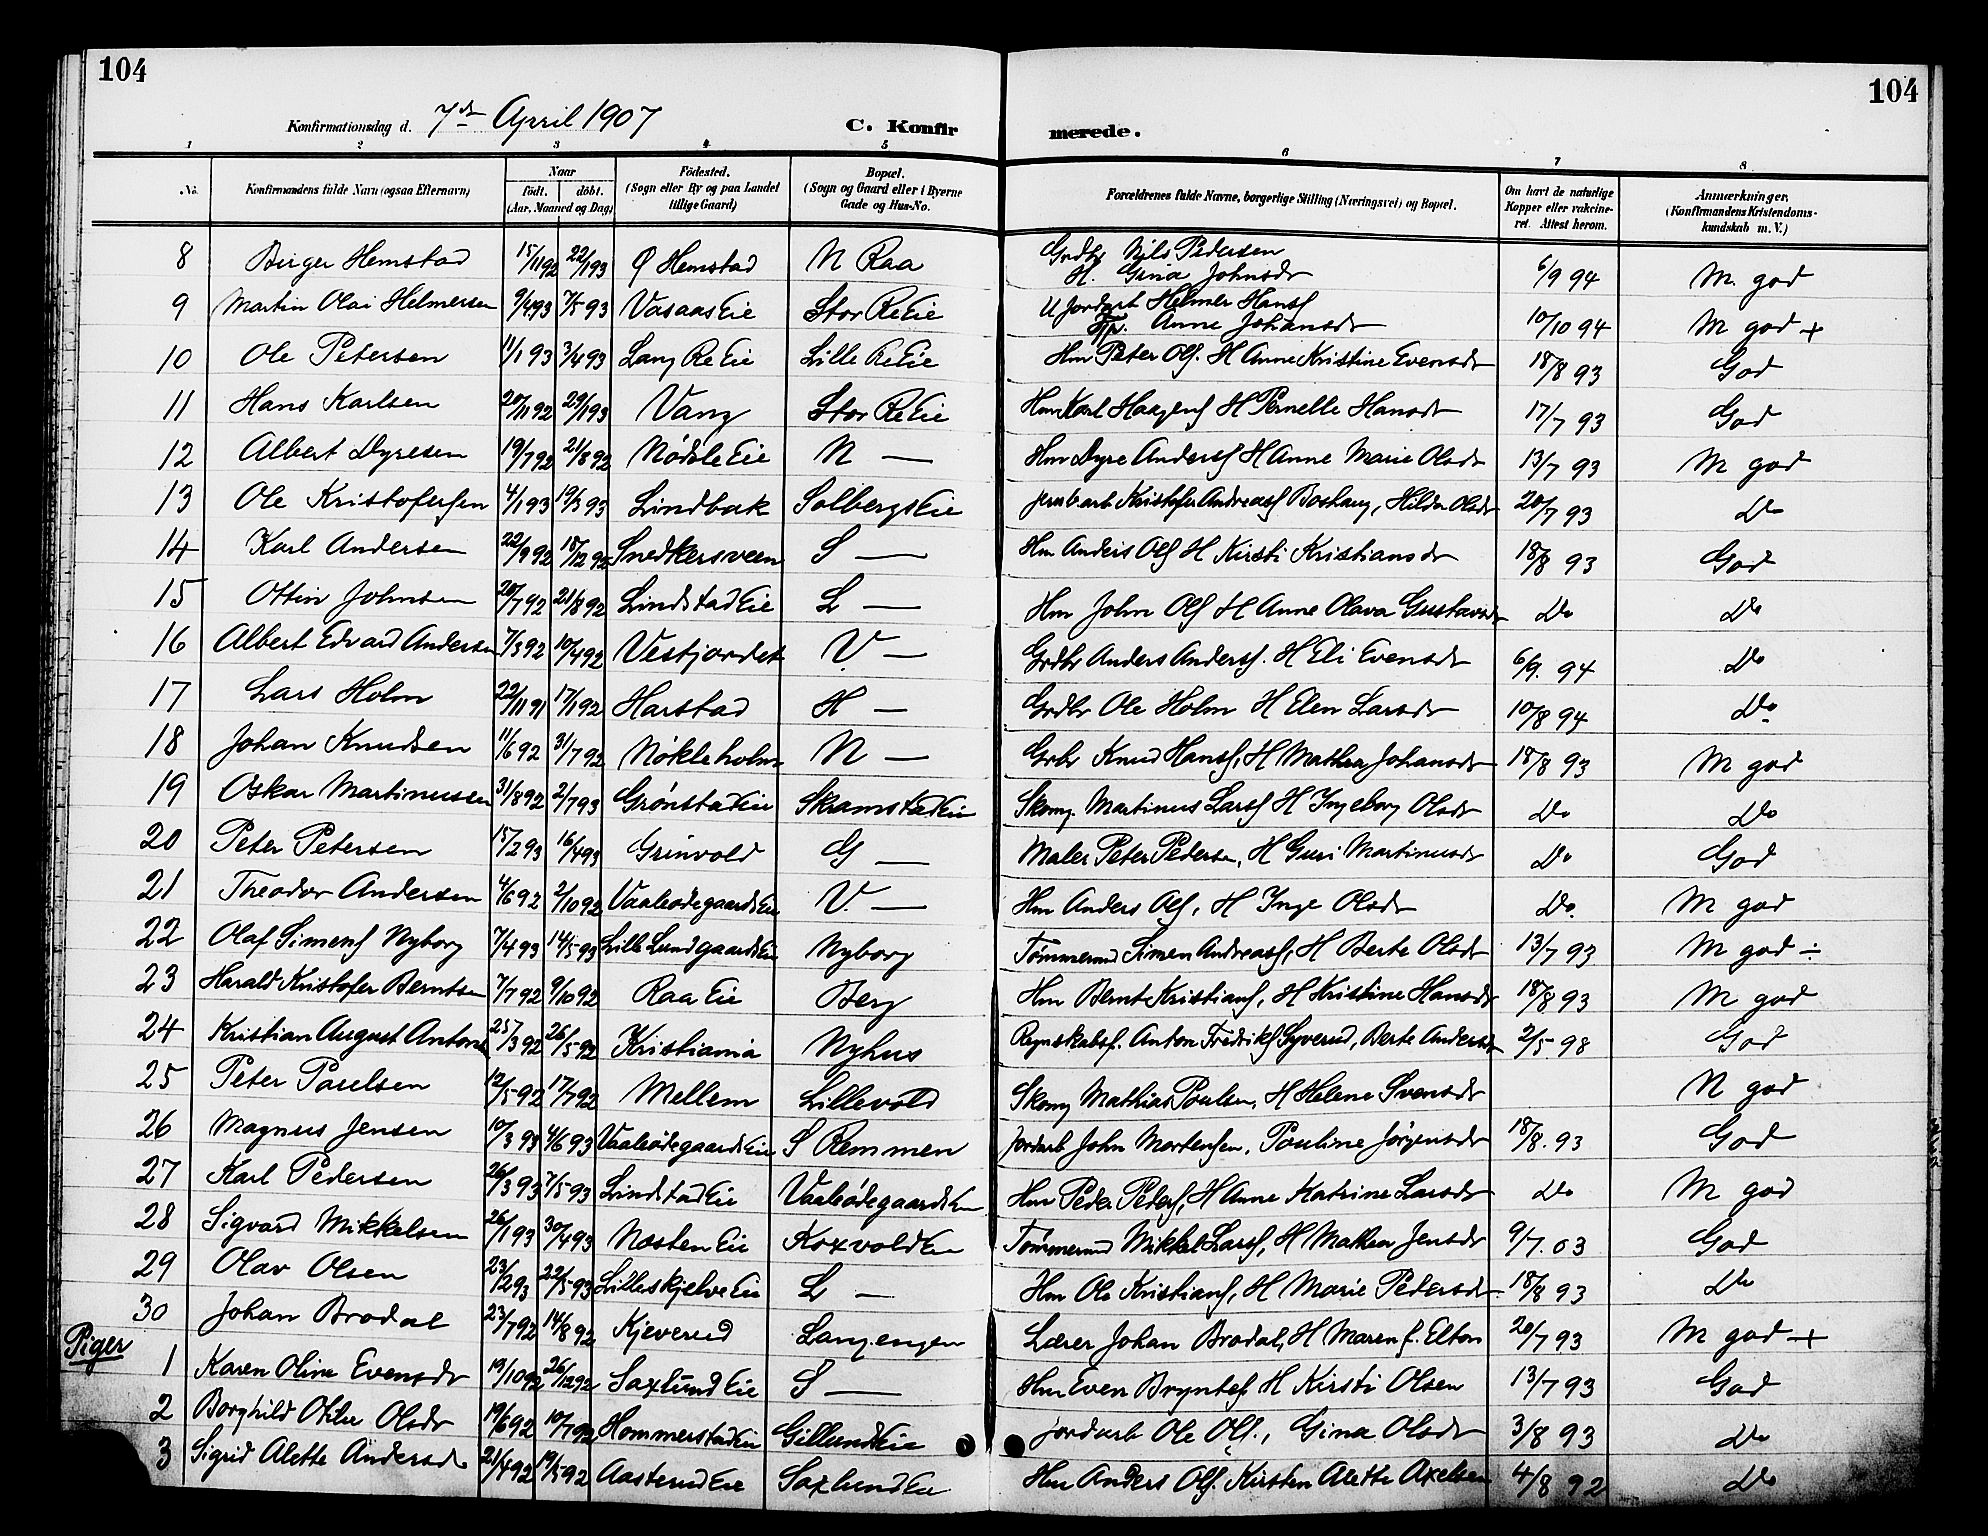 104
104
Konfirmationsdag d. 7de April 1907
C. Konfirmerede.
1 2 3 4 5 6 7 8
No. Konfirmandens fulde Navn (ogsaa Efternavn) Naar födt. döbt. (Aar, Maaned og Dag) Födested. (Sogn eller By og paa Landet tillige Gaard) Bopæl. (Sogn og Gaard eller i Byerne Gade og Hus-No. Forældrenes fulde Navne, borgerlige Stilling (Næringsvei) og Bopæl. Om havt de naturlige Kopper eller vakcineret. Attest herom. Anmærkninger. (Konfirmandens Kristendomskundskab m. V.)
8 Birger Hemstad 15/11 92 22/1 93 Ø Hemstad N Raa Grdbr Nils Pedersen H. Gina Johnsdr 6/9 94 M. god
9 Martin Olai Helmersen 9/4 93 7/5 93 Vasaas Eie Stor Re Eie U Jordarb Helmer Hansf Anne Johansdr 10/10 94 M god +
10 Ole Petersen 11/1 93 3/4 93 Lang Re Eie Lille Re Eie Hm Peter Olf. H Anne Kristine Evensdr 18/8 93 God
11 Hans Karlsen 20/11 92 29/1 93 Vang Stor Re Eie Hm Karl Haagensf H Pernelle Hansdr 17/7 93 God
12 Albert Dyresen 19/7 92 21/8 92 Nødsle Eie N — Hm Dyre Andersf H Anne Marie Olsdr 13/7 93 M god
13 Ole Kristofersen 4/1 93 19/3 93 Lindbak Solbergs Eie Jernb arb Kristofer Andreasf Boshaug, Hilda Olsdr 20/7 93 Do
14 Karl Andersen 22/9 92 18/12 92 Snedkersveen S — Hm Anders Olf H Kirsti Kristiansdr 18/8 93 God
15 Ottin Johnsen 20/7 92 21/8 92 Lindstad Eie L — Hm John Olf H Anne Olava Gustavsdr Do Do
16 Albert Edvard Andersen 7/3 92 10/4 92 Vestjordet V — Grdbr Anders Andersf. H Eli Evensdr 6/9. 94 Do
17 Lars Holm 22/11 91 17/1 92 Harstad H — Grdbr Ole Holm H Elen Larsdr 10/8 94 Do
18 Johan Knudsen 11/6 92 31/7 92 Nökleholm N — Grbr Knud Hansf, H Mathea Johansdr 18/8 93 M god
19 Oskar Martinussen 31/8 92 2/7 93 Grönstad Eie Skramstad Eie Skom. Martinus Larsf H Ingeborg Olsdr Do Do
20 Peter Petersen 15/2 93 16/4 93 Grinvold G — Maler Peter Pedersen, H Guri Martinusdr Do God
21 Theodor Andersen 4/6 92 2/10 92 Vaaleødegaards Eie V. — Hm Anders Olf, H Inge Olsdr Do. M god
22 Olaf Simensf Nyborg 7/4 93 14/5 93 Lille Lundgaards Eie Nyborg Tømmermd Simen Andreasf, H Berte Olsdr 13/7 93 M god ÷
23 Harald Kristofer Berntsen 7/7 92 9/10 92 Raa Eie Berg Hm Bernt Kristiansf, H Kristine Hansdr 18/8 93 M god
24 Kristian August Antonsen 25/3 92 26/5 92 Kristiania Nyhus Regnskabsf. Anton Fredriksf Syverud, Berte Andersdr 2/5 98 God
25 Peter Paulsen 12/5 92 17/7 92 Mellem Lillevold Skom Mathias Poulsen, H Helene Svensdr N god
26 Magnus Jensen 10/3 93 4/6 93 Vaaleødegaards Eie S Remmen Jordarb John Mortensen, Pauline Jörgensdr 18/8. 93 God
27 Karl Pedersen 26/3 93 7/5 93 Lindstad Eie Vaaleødegaards Eie Hm Peder Pedersf, H Anne Katrine Larsdr Do M god
28 Sigvard Mikkelsen 26/1 93 30/4 93 Næsten Eie Koxvold Eie Tømmermd Mikkel Larsf, H Mathea Jensdr 9/7. 03 God
29 Olav Olsen 23/2 93 22/5 93 Lilleskjelve Eie L — Hm Ole Kristiansf, H Marie Pedersdr 18/8 93 Do
30 Johan Brodal 23/7 92 14/8 92 Kjeverud Langengen Lærer Johan Brodal, H Maren f. Elton 20/7 93 M god +
Piger
1 Karen Oline Evensdr 19/10 92 26/12 92 Saxlund Eie S — Hm Even Bryntesf H Kirsti Olsen 13/7 93 God
2 Borghild Otilie Olsdr 19/6 92 10/7 92 Hommerstad Eie Gillund Eie Jordarb Ole Olf., Gina Olsdr 3/8 93 Do
3 Sigrid Alette Andersdr 21/4 92 19/5 92 Aasterud Eie Saxlund Eie Hm Anders Olf. Kirsten Alette Axelsen 4/8 92 Do